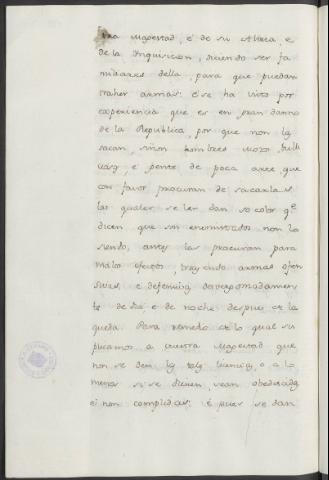 tra Magestad, é de su Alteza, e
de la Inquisicion, diciendo ser fa
miliares della, para que puedan
traher armas: é se ha visto por
experiencia que es en gran danno
de la Republica, por que non las
sacan, sinon hombres mozos, bulli
ciosos, é gente de poca arte que
con favor procuran de sacarlas
las quales se les dan so color qe.
dicen, que son enemistados non lo
siendo, antes las procuran para
malos efectos, trayendo armas ofen
sivas, é defensivas desvergonzadamen
te de dia, é de noche despues de la
queda. Para remedio de lo qual su
plicamos a vuestra Magestad que
non se den las tales licencias, o a lo
menos si se dieren sean obedecidas
é non complidas: É pues se dan